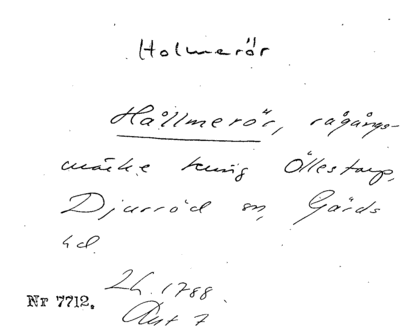 Holmerör
Hållmerör, rågångs-
märke kring Öllestorp,
Djurröd sn, Gärds
hd.
Lh. 1788
Nr 7712. Akt 7